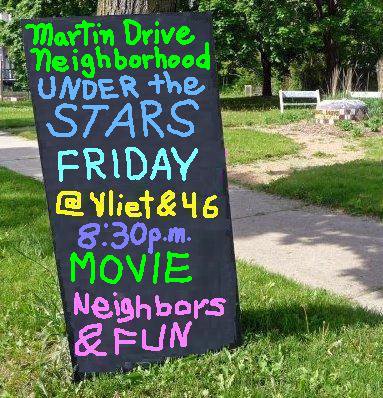 Martin Drive
Neighborhood
UNDER the
STARS
FRIDAY
@ Vliet & 46
8:30p.m.
MOVIE
Neighbors
& FUN